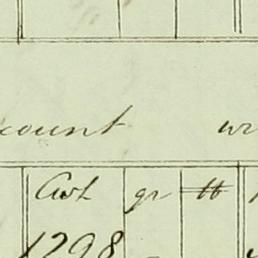 count wr
Cwt qr ℔
1298 -